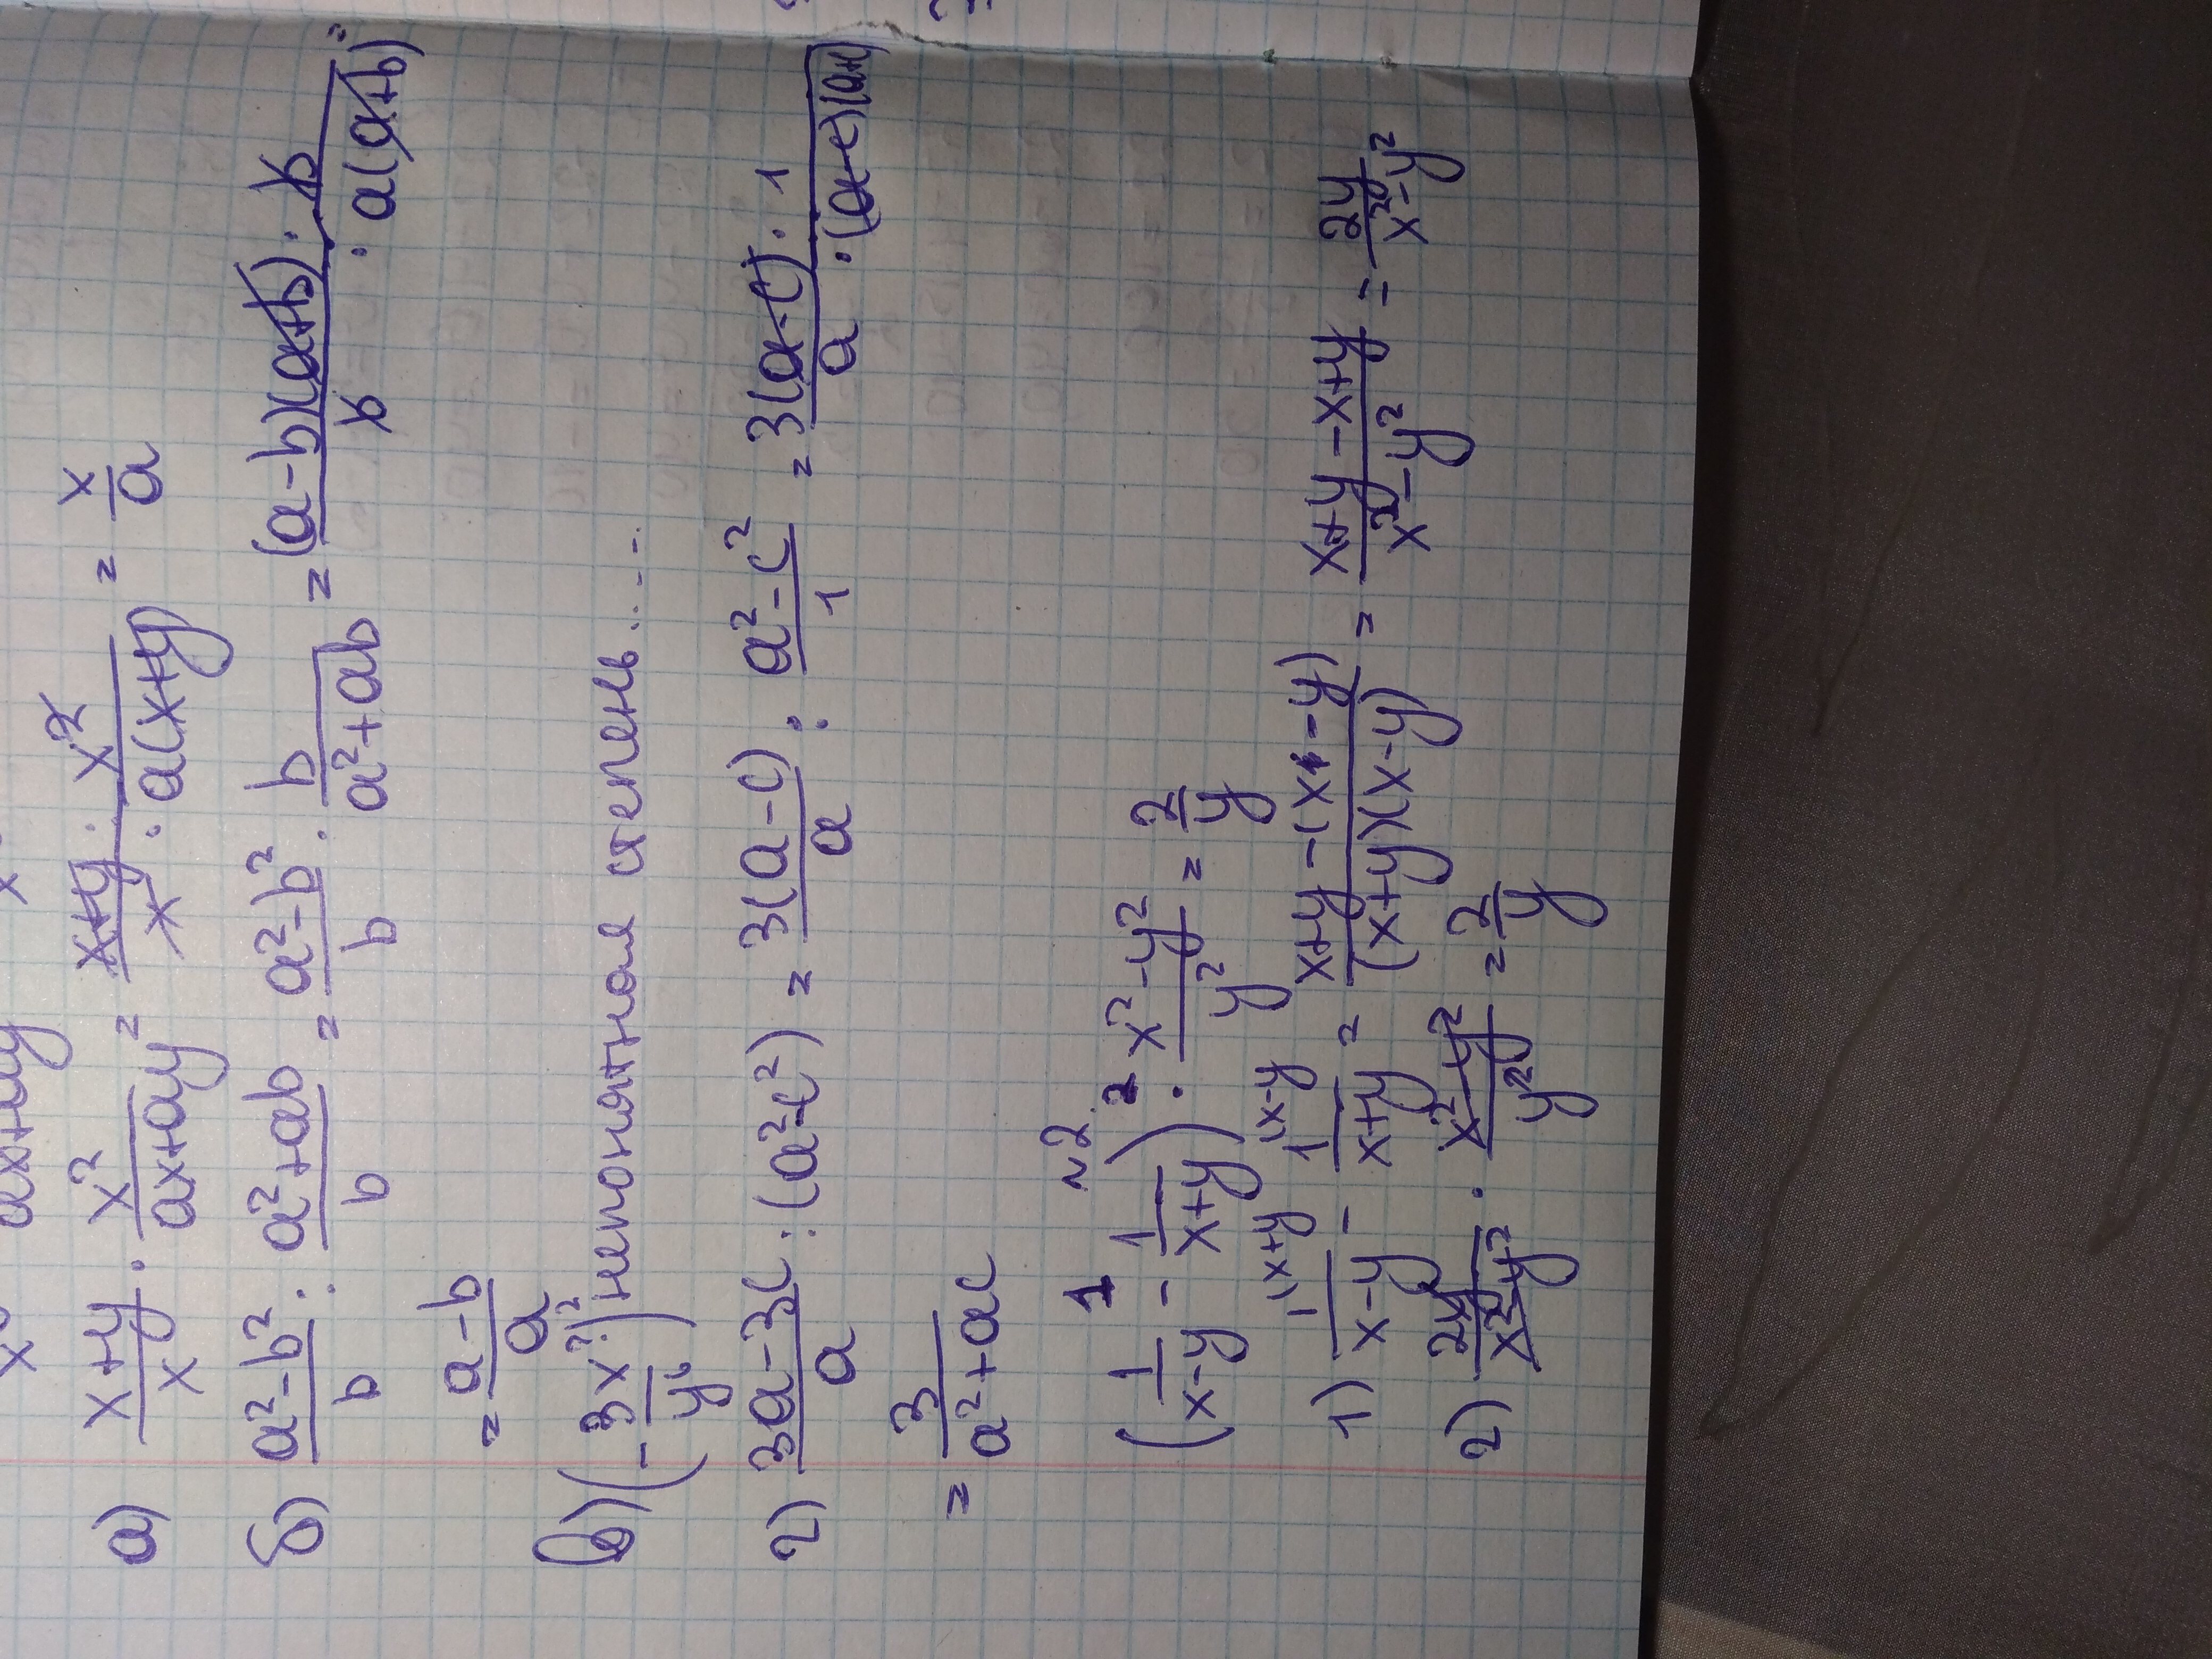 а) x+y/x · x²/ax+ay = x+y · x²/x · a(x+y) = x/a
б) a²-b²/b : a²+ab/b = a²-b²/b · b/a²+ab = (a-b)(a+b) · b/b · a(a+b) =
= a-b/a
в) (-3x?/y⁶)² непонятная степень.....
г) 3a-3c/a : (a²-c²) = 3(a-c)/a : a²-c²/1 = 3(a-c) · 1/a · (a-c)(a+c)
= 3/a²+ac
№2
(1/x-y - 1/x+y) · x²-y²/y² = 2/y
1) 1(x+y/x-y - 1(x-y/x+y = x+y-(x-y)/(x+y)(x-y) = x+y-x+y/x²-y² = 2y/x²-y²
2) 2y/x²-y² · x²-y²/y² = 2/y